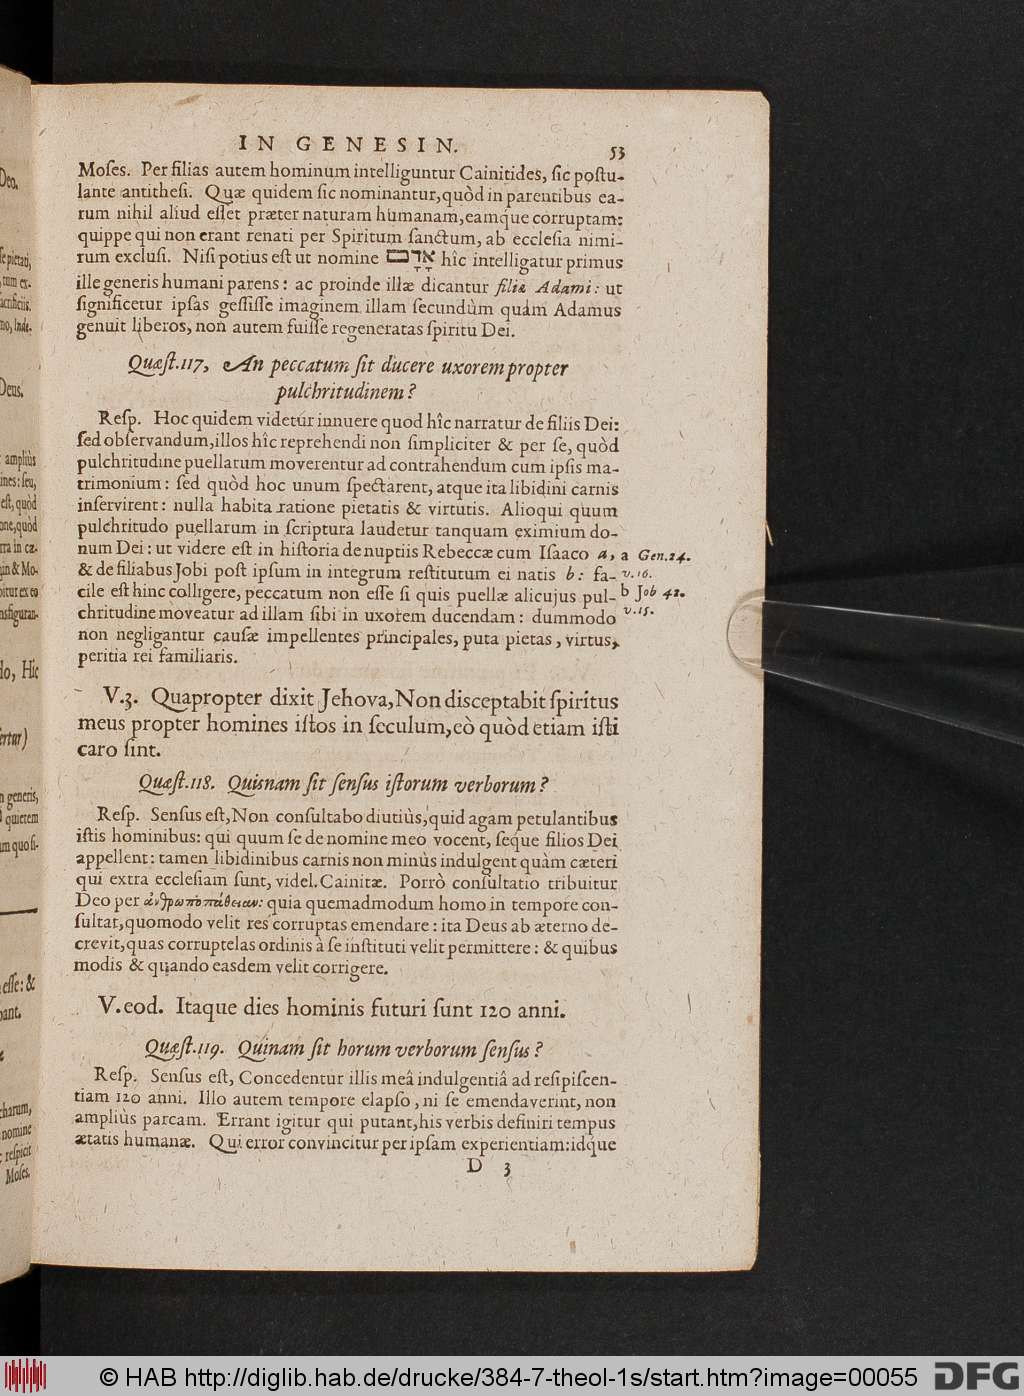 IN GENESIN.
53
Moſes. Per filias autem hominum intelliguntur Cainitides, ſic poſtu-
lante antitheſi. Quæ quidem ſic nominantur, quòd in parentibus ea-
rum nihil aliud eſſet præter naturam humanam, eamque corruptam:
quippe qui non erant renati per Spiritum ſanctum, ab eccleſia nimi-
rum excluſi. Niſi potius eſt ut nomine אָדָם hîc intelligatur primus
ille generis humani parens: ac proinde illæ dicantur filiæ Adami: ut
ſignificetur ipſas geſſiſſe imaginem illam ſecundùm quam Adamus
genuit liberos, non autem fuiſſe regeneratas ſpiritu Dei.
Quæſt. 117, An peccatum ſit ducere uxorem propter
pulchritudinem?
Reſp. Hoc quidem videtur innuere quod hîc narratur de filiis Dei:
ſed obſervandum, illos hîc reprehendi non ſimpliciter & per ſe, quòd
pulchritudine puellarum moverentur ad contrahendum cum ipſis ma-
trimonium: ſed quòd hoc unum ſpectarent, atque ita libidini carnis
inſervirent: nulla habita ratione pietatis & virtutis. Alioqui quum
pulchritudo puellarum in ſcriptura laudetur tanquam eximium do-
num Dei: ut videre eſt in hiſtoria de nuptiis Rebeccæ cum Iſaaco a,
a Gen. 24.
& de filiabus Jobi poſt ipſum in integrum reſtitutum ei natis b: fa-
v. 16.
cile eſt hinc colligere, peccatum non eſſe ſi quis puellæ alicujus pul-
b Job 42.
chritudine moveatur ad illam ſibi in uxorem ducendam: dummodo
v. 15.
non negligantur cauſæ impellentes principales, puta pietas, virtus,
peritia rei familiaris.
V. 3. Quapropter dixit Jehova, Non disceptabit ſpiritus
meus propter homines iſtos in ſeculum, eò quòd etiam iſti
caro ſint.
Quæſt. 118. Quisnam ſit ſenſus iſtorum verborum?
Reſp. Senſus eſt, Non conſultabo diutiùs, quid agam petulantibus
iſtis hominibus: qui quum ſe de nomine meo vocent, ſeque filios Dei
appellent: tamen libidinibus carnis non minùs indulgent quàm cæteri
qui extra eccleſiam ſunt, videl. Cainitæ. Porrò conſultatio tribuitur
Deo per ἀνθρωποπάθειαν: quia quemadmodum homo in tempore con-
ſultat, quomodo velit res corruptas emendare: ita Deus ab æterno de-
crevit, quas corruptelas ordinis à ſe inſtituti velit permittere: & quibus
modis & quando easdem velit corrigere.
V. eod. Itaque dies hominis futuri ſunt 120 anni.
Quæſt. 119. Quinam ſit horum verborum ſenſus?
Reſp. Senſus eſt, Concedentur illis meâ indulgentiâ ad reſipiſcen-
tiam 120 anni. Illo autem tempore elapſo, ni ſe emendaverint, non
ampliùs parcam. Errant igitur qui putant, his verbis definiri tempus
ætatis humanæ. Qui error convincitur per ipſam experientiam: idque
D 3
© HAB http://diglib.hab.de/drucke/384-7-theol-1s/start.htm?image=00055
DFG